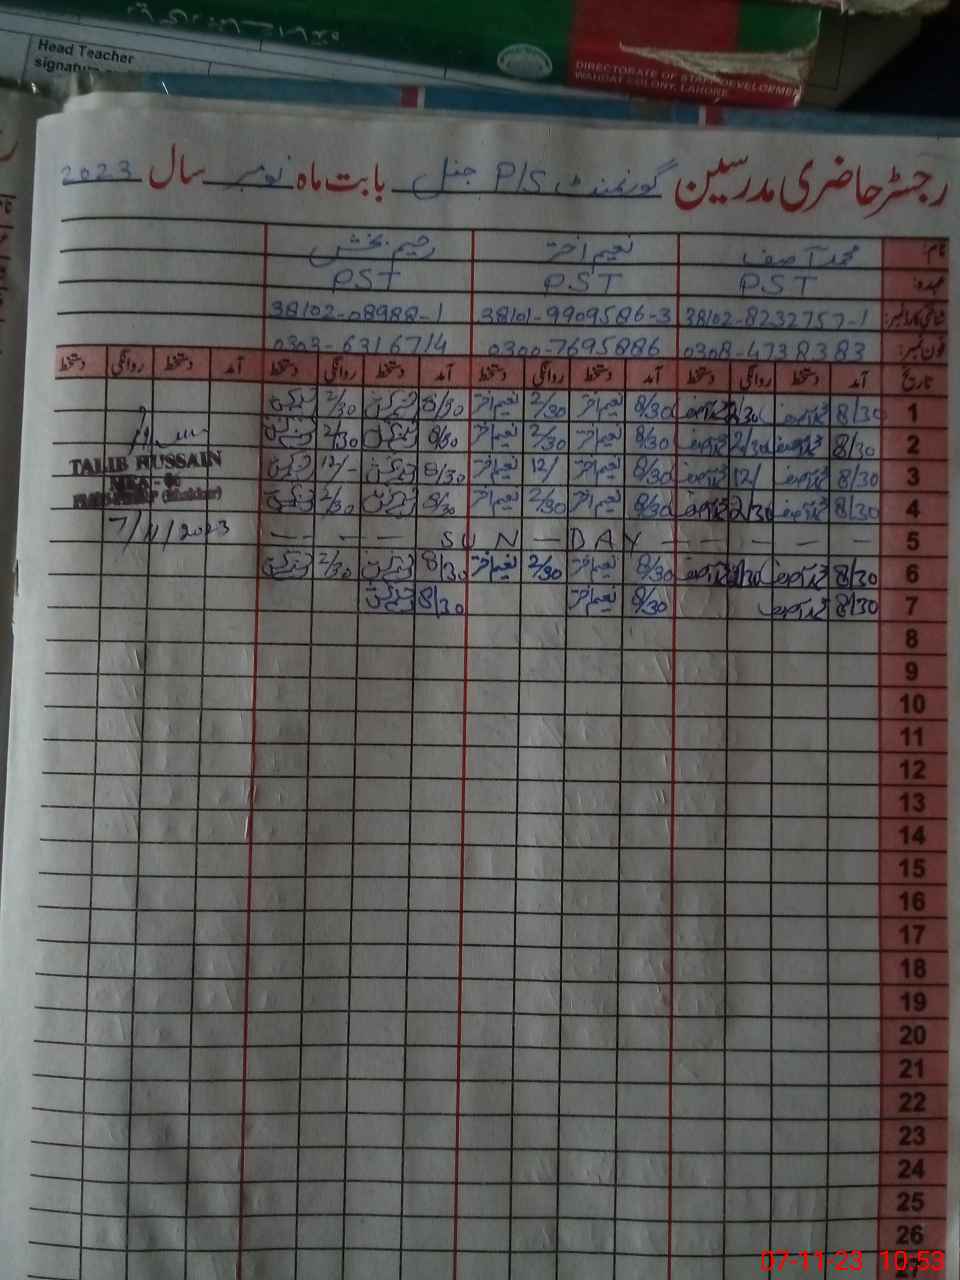 Head Teacher
DIRECTORATE OF STAFF DEVELOPMEN
WAHDAT COLONY, LAHORE
رجسٹر حاضری مدرسین گورنمنٹ P/S بابت ماہ نومبر سال 2023
نام: محمد آصف نعیم اختر رحیم بخش
عہدہ: PST PST PST
شناختی کارڈ نمبر: 38102-8232757-1 38101-9909586-3 38102-08988-1
فون نمبر: 0308-4738383 0300-7695886 0303-6316714
تاریخ آمد دستخط روانگی دستخط آمد دستخط روانگی دستخط آمد دستخط روانگی دستخط آمد دستخط روانگی دستخط
1 8/30 محمد آصف 2/30 محمد آصف 8/30 نعیم اختر 2/30 نعیم اختر 8/30 2/30
2 8/30 محمد آصف 2/30 محمد آصف 8/30 نعیم اختر 2/30 نعیم اختر 8/30 2/30
3 8/30 محمد آصف 12/ محمد آصف 8/30 نعیم اختر 12/ نعیم اختر 8/30 12/-
4 8/30 محمد آصف 2/30 محمد آصف 8/30 نعیم اختر 2/30 نعیم اختر 8/30 2/30
5 — — — SUN — DAY — — — —
6 8/30 محمد آصف 2/30 محمد آصف 8/30 نعیم اختر 2/30 نعیم اختر 8/30 2/30
7 8/30 محمد آصف 8/30 نعیم اختر 8/30
TALIB HUSSAIN
MEA
7/11/2023
8
9
10
11
12
13
14
15
16
17
18
19
20
21
22
23
24
25
26
07-11-23 10:53